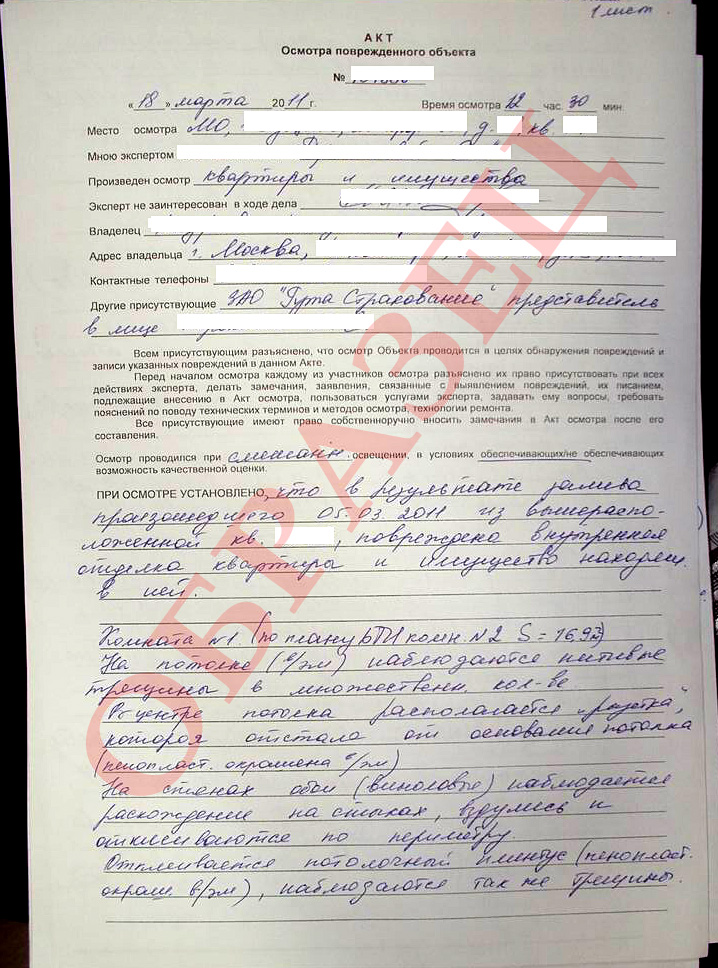 1 лист
АКТ
Осмотра поврежденного объекта
№
«18» марта 2011 г. Время осмотра 12 час. 30 мин.
Место осмотра МО, д. кв.
Мною экспертом
Произведен осмотр квартиры и имущества
Эксперт не заинтересован в ходе дела
Владелец
Адрес владельца г. Москва,
Контактные телефоны
Другие присутствующие ЗАО "Гута Страхование" представитель
в лице
Всем присутствующим разъяснено, что осмотр Объекта проводится в целях обнаружения повреждений и
записи указанных повреждений в данном Акте.
Перед началом осмотра каждому из участников осмотра разъяснено их право присутствовать при всех
действиях эксперта, делать замечания, заявления, связанные с выявлением повреждений, их писанием,
подлежащие внесению в Акт осмотра, пользоваться услугами эксперта, задавать ему вопросы, требовать
пояснений по поводу технических терминов и методов осмотра, технологии ремонта.
Все присутствующие имеют право собственноручно вносить замечания в Акт осмотра после его
составления.
Осмотр проводился при смешанн. освещении, в условиях обеспечивающих/не обеспечивающих
возможность качественной оценки.
ПРИ ОСМОТРЕ УСТАНОВЛЕНО, что в результате залива
произошедшего 05.03.2011 из вышераспо-
ложенной кв. , повреждена внутренняя
отделка квартиры и имущество находящ.
в ней.
Комната №1. (по плану БТИ комн. №2 S = 16,93)
На потолке (в/эм) наблюдаются нитевые
трещины в множественн. кол-ве
В центре потолка располагается "розетка",
которая отстала от основания потолка
(пенопласт. окрашена в/эм)
На стенах обои (виниловые) наблюдается
расхождение на стыках, вздулись и
отклеиваются по периметру.
Отклеивается потолочный плинтус (пенопласт.
окраш. в/эм), наблюдаются так же трещины.
ОБРАЗЕЦ